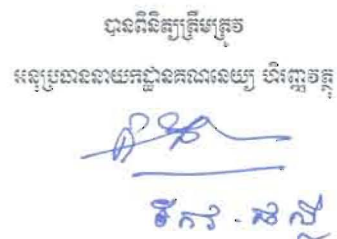 បានពិនិត្យត្រឹមត្រូវ
អនុប្រធាននាយកដ្ឋានគណនេយ្យ ហិរញ្ញវត្ថុ